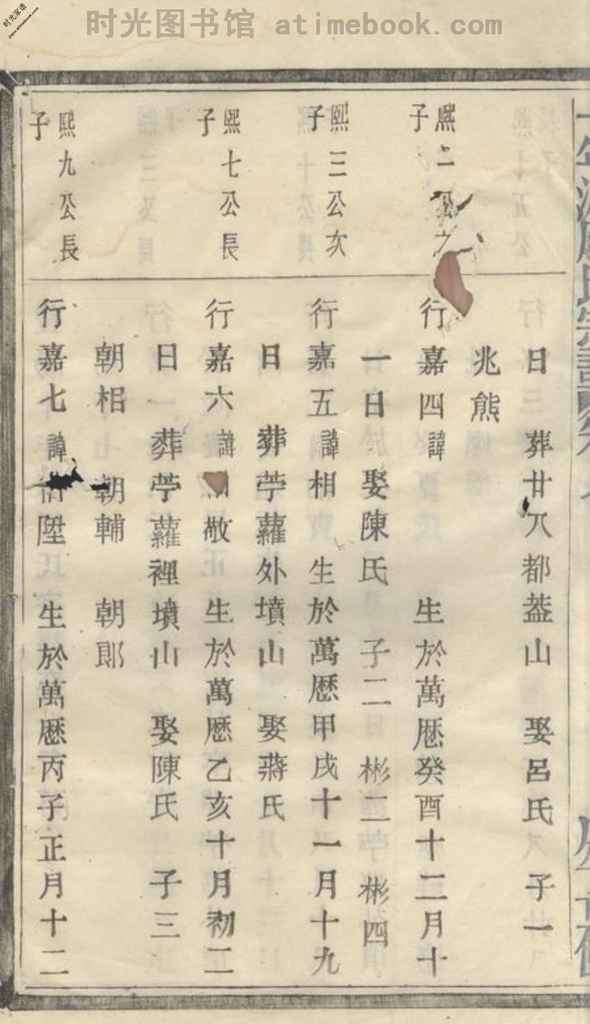 时光图书馆 atimebook.com
日 葬廿八都葢山 娶呂氏 子一
兆熊
熈二公
子
行嘉四諱 生於萬厯癸酉十二月十
一日 娶陳氏 子二 彬二 彬四
熙三公次
子
行嘉五諱相 生於萬厯甲戌十一月十九
日 葬苧蘿外墳山 娶蔣氏
熙七公長
子
行嘉六諱 敬 生於萬厯乙亥十月初二
日 葬苧蘿裡墳山 娶陳氏 子三
朝相 朝輔 朝郎
熙九公長
子
行嘉七諱 陞 生於萬厯丙子正月十二